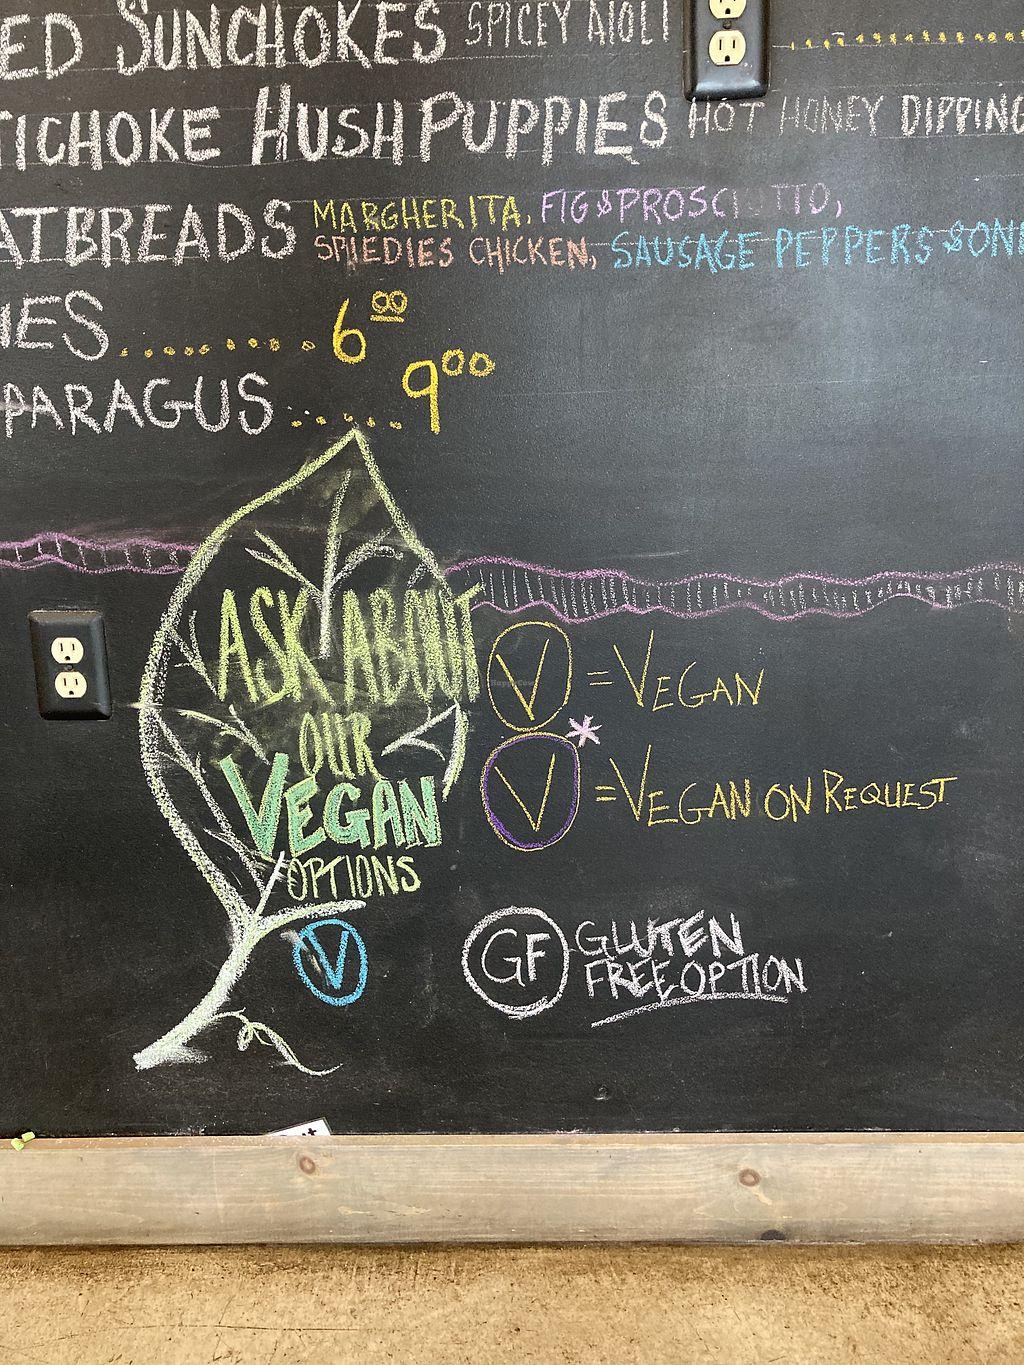 ED SUNCHOKES SPICEY AIOLI
TICHOKE HUSH PUPPIES HOT HONEY DIPPING
ATBREADS MARGHERITA, FIG & PROSCIUTTO,
SPIEDIES CHICKEN, SAUSAGE PEPPERS & ONI
IES .......... 6⁰⁰
PARAGUS ...... 9⁰⁰
ASK ABOUT
OUR
VEGAN
OPTIONS
V
V = VEGAN
V* = VEGAN ON REQUEST
GF GLUTEN
FREE OPTION